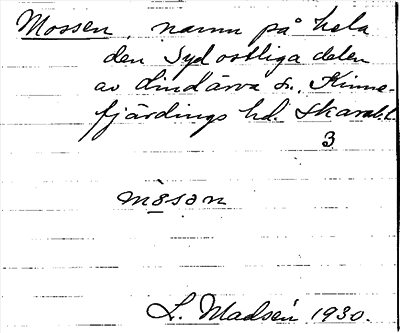 Mossen, namn på hela
den Sydostliga delen
av Lindärva sn., Kinne-
fjärdings hd. Skarab.l.
3
mosən
L. Madsén 1930.